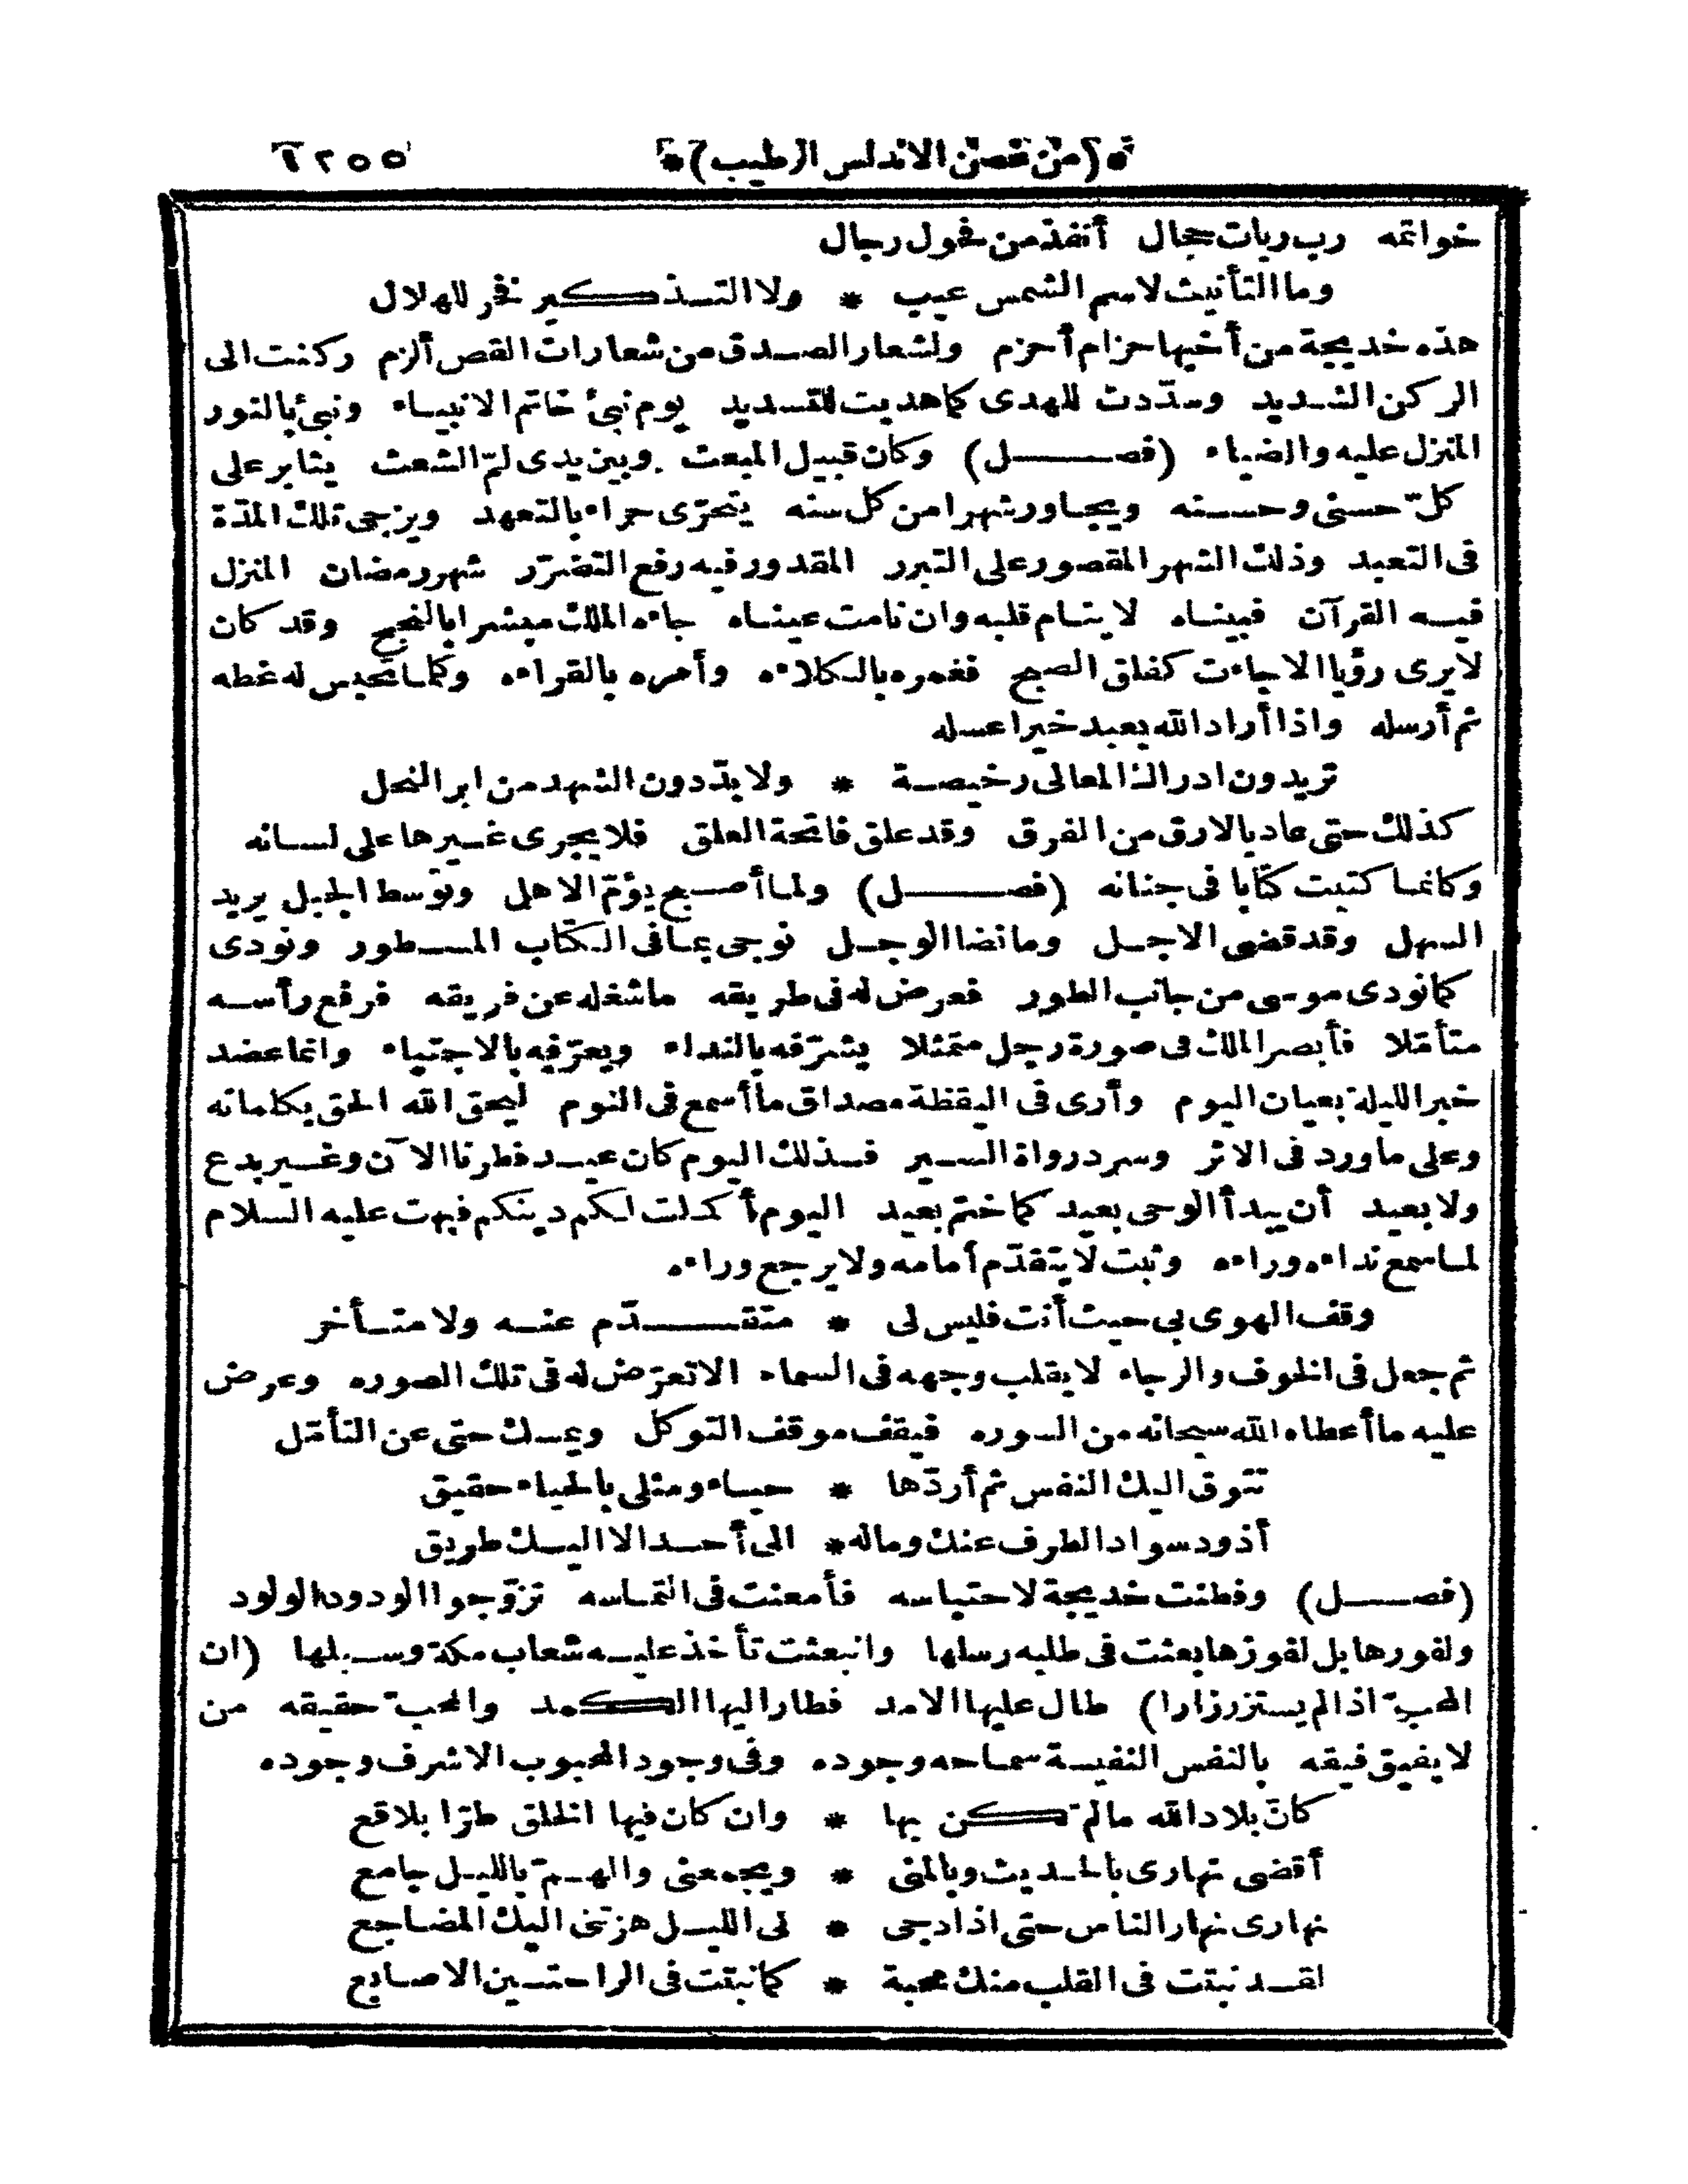 *(من غصن الاندلس الرطيب)* ١٢٥٥
خواتمه رب ربات حجال أنفذ من فحول رجال
وما التأنيث لاسم الشمس عيب * ولا التــذكير فخر للهلال
هذه خديجة من أخيها حزام أحزم ولشعار الصــدق من شعارات القص ألزم ركنت الى
الركن الشــديد وسدّدت للهدى كما هديت للتسديد يوم نبئ خاتم الانبيــاء ونبئ بالنور
المنزل عليه والضياء (فصــل) وكان قبيل المبعث وبين يدى لمّ الشعث يثابر على
كلّ حسنى وحســنه ويجــاور شهرا من كل سنه يتحرّى حراء بالتعهد ويزجى تلك المدّة
فى التعبد وذلك الشهر المقصور على التبرر المقدور فيه رفع التضرّر شهر رمضان المنزل
فيــه القرآن فبينــاه لا ينــام قلبه وان نامت عينــاه جاءه الملك مبشرا بالنجح وقد كان
لا يرى رؤيا الا جاءت كفلق الصبح فغمره بالكلاءه وأمره بالقراءه وكلمــا تحبس له غطه
ثم أرسله واذا أراد الله بعبد خيرا عسله
تريدون ادراك المعالى رخيصــة * ولا بدّ دون الشهد من ابر النحل
كذلك حتى عاد بالارق من الفرق وقد علق فاتحة العلق فلا يجرى غــيرها على لســانه
وكانمــا كتبت كتابا فى جنانه (فصــل) ولما أصــبح يؤمّ الاهل وتوسط الجبل يريد
السهل وقد قضى الاجــل وما نضا الوجــل نوجى بمــا فى الكتاب المســطور ونودى
كما نودى موسى من جانب الطور فعرض له فى طريقه ما شغله عن فريقه فرفع رأســه
متأمّلا فأبصر الملك فى صورة رجل متمثلا يشرّفه بالنداء ويعرّفه بالاجتباء وانما عضد
خبر الليلة بعيان اليوم وأرى فى اليقظة مصداق ما أسمع فى النوم ليحق الله الحق بكلماته
وعلى ما ورد فى الاثر وسرد رواة الســير فــذلك اليوم كان عيــد فطرنا الآن وغــير بدع
ولا بعيد أن يبدأ الوحى بعيد كما ختم بعيد اليوم أكملت لكم دينكم فبهت عليه السلام
لمــا سمع نداءه وراءه وثبت لا يتقدّم أمامه ولا يرجع وراءه
وقف الهوى بى حيث أنت فليس لى * متقــدّم عنــه ولا متــأخر
ثم جعل فى الخوف والرجاء لا يقلب وجهه فى السماء الا تعرّض له فى تلك الصوره وعرض
عليه ما أعطاه الله سبحانه من السوره فيقف موقف التوكل ويمسك حتى عن التأمّل
تتوق اليك النفس ثم أردّها * حيــاء ومثلى بالحياء حقيق
أذود سواد الطرف عنك وماله * الى أحــد الا اليــك طريق
(فصــل) وفطنت خديجة لاحتباسه فأمعنت فى التمــاسه تزوّجوا الودود الولود
ولفورها بل لفوزها بعثت فى طلبه رسلها وانبعثت تأخذ عليــه شعاب مكة وســبلها (ان
المحبّ اذا لم يستزر زارا) طال عليها الامد فطار اليها الكمد والمحبّ حقيقه من
لا يفيق فيقه بالنفس النفيسة سمــاحه وجوده وفى وجود المحبوب الاشرف وجوده
كانّ بلاد الله ما لم تكن بها * وان كان فيها الخلق طرّا بلاقع
أقضى نهارى بالحــديث وبالمنى * ويجمعنى والهــمّ بالليــل جامع
نهارى نهار الناس حتى اذا دجى * لى الليــل هزتنى اليك المضــاجع
لقــد نبتت فى القلب منك محبة * كما نبتت فى الراحتــين الاصــابع